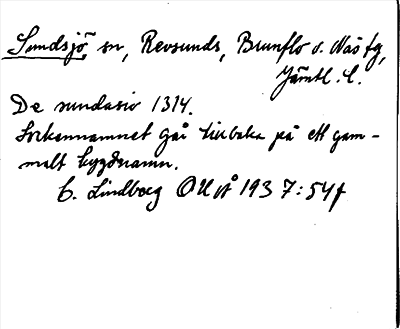 Sundsjö sn, Revsunds, Brunflo o. Näs tg,
Jämtl. l.
De sundasio 1314.
Sockennamnet går tillbaka på ett gam-
malt bygdnamn.
C. Lindberg OUÅ 1937:54f